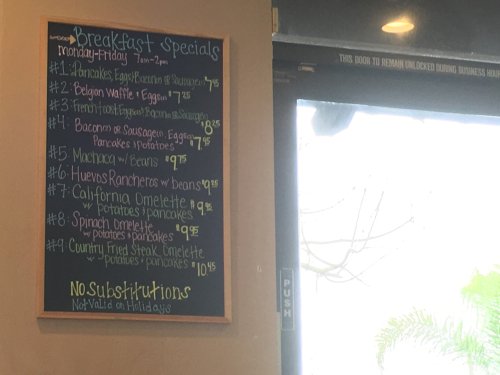 Breakfast Specials
Monday-Friday 7am-2pm
#1: Pancakes, Eggs(2) Bacon(2) or Sausage(2) $7.95
#2: Belgian Waffle & Eggs(2) $7.25
#3: French Toast, Eggs(2), Bacon(2) or Sausage(2)
$8.25
#4: Bacon(2) or Sausage(2), Eggs(2)
Pancakes & Potatoes $7.95
#5: Machaca w/ Beans $9.75
#6: Huevos Rancheros w/ beans $9.25
#7: California Omelette
w/ potatoes & pancakes $9.95
#8: Spinach Omelette
w/ potatoes & pancakes $9.95
#9: Country Fried Steak, Omelette
w/ potatoes & pancakes
$10.45
No Substitutions
Not Valid on Holidays
THIS DOOR TO REMAIN UNLOCKED DURING BUSINESS HOUR
PUSH